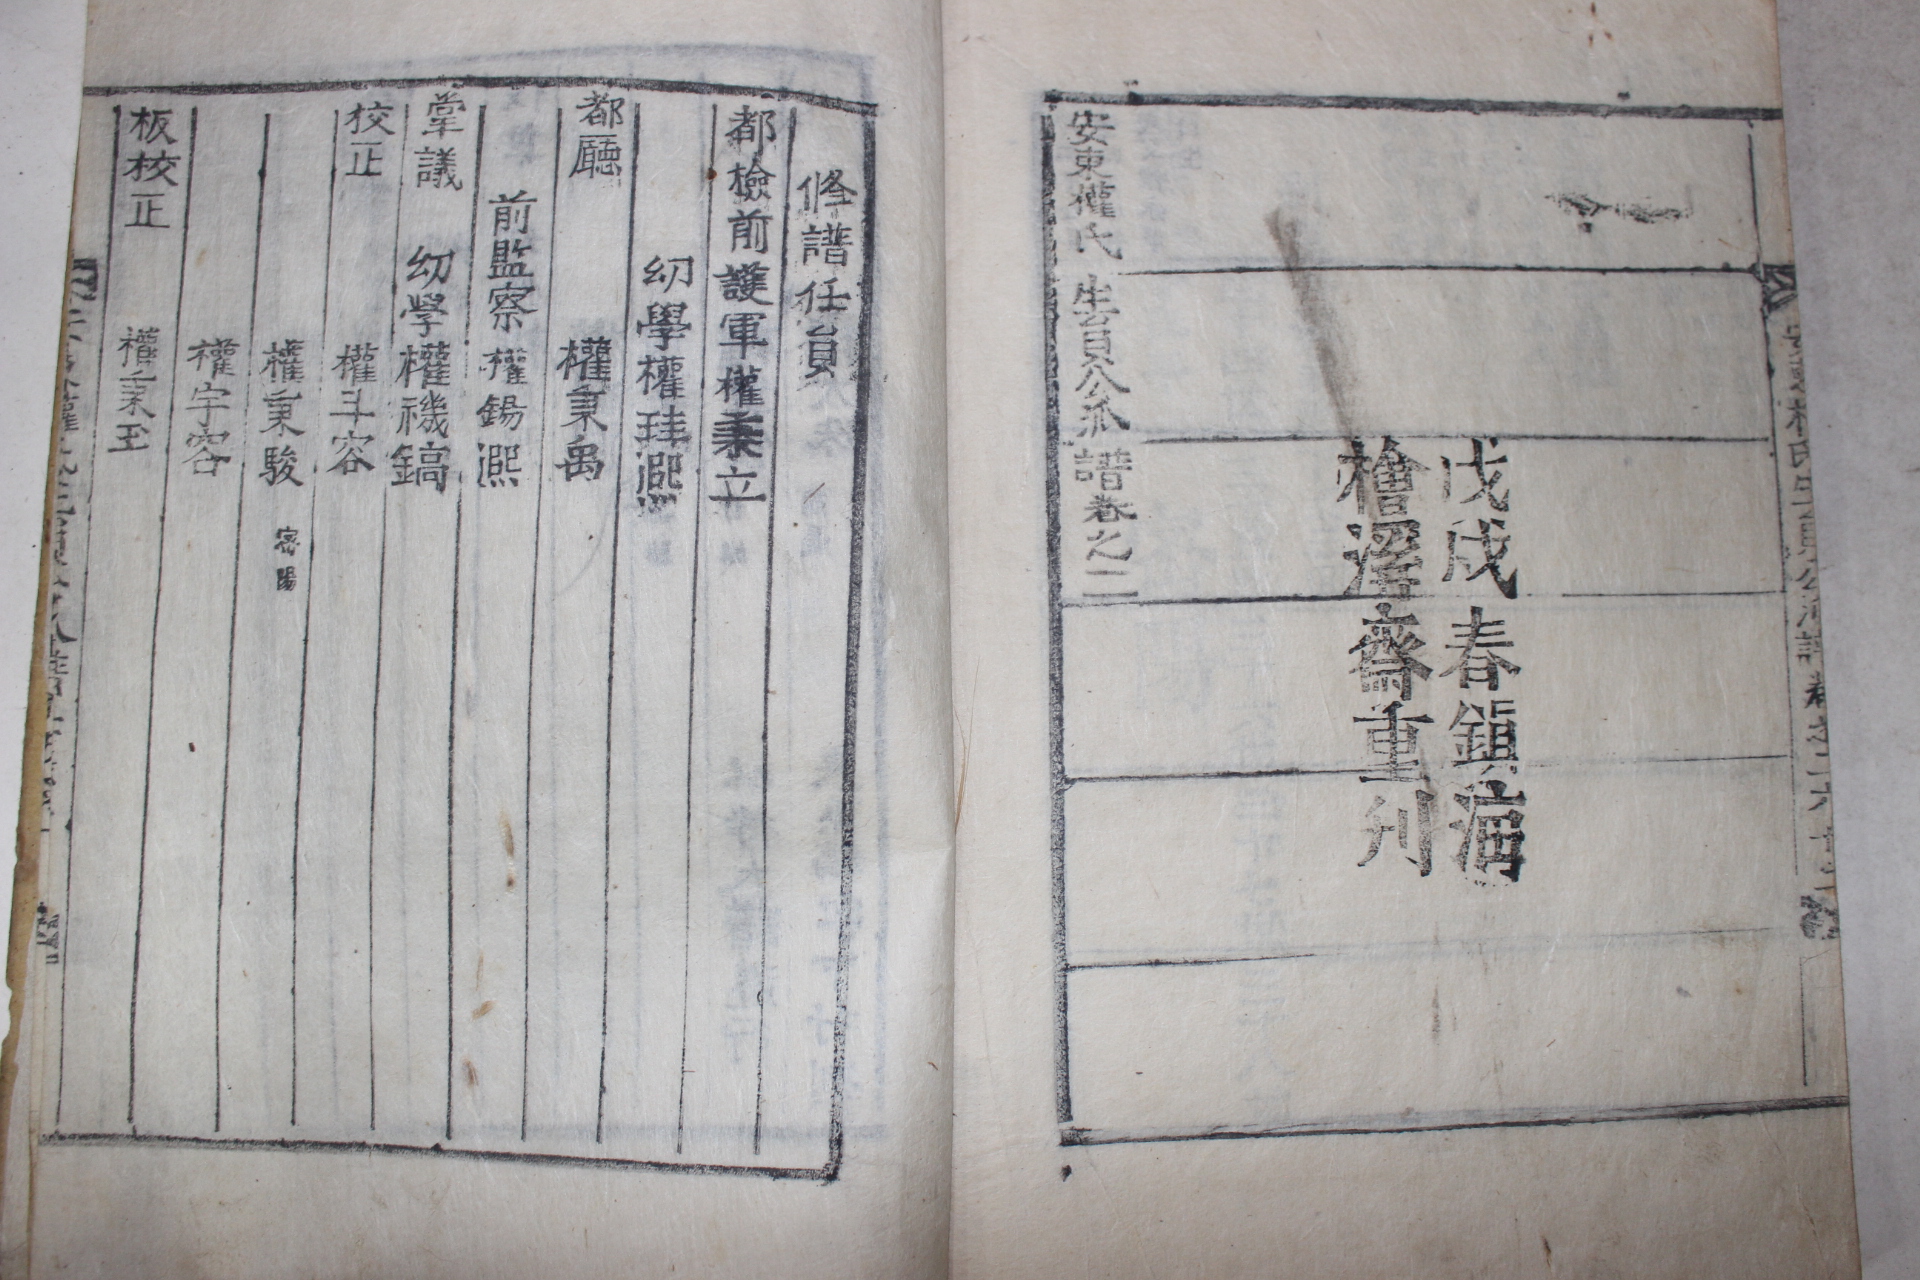 戊戌春鎮海
檜淵齋重刊
安東權氏生員公派譜卷之二
修譜任員
都檢前護軍權秉立
幼學權珪熙
都廳 權秉禹
前監察權錫熙
掌議 幼學權禨鎬
校正 權斗容
權秉駿 密陽
權宇容
板校正 權秉玉